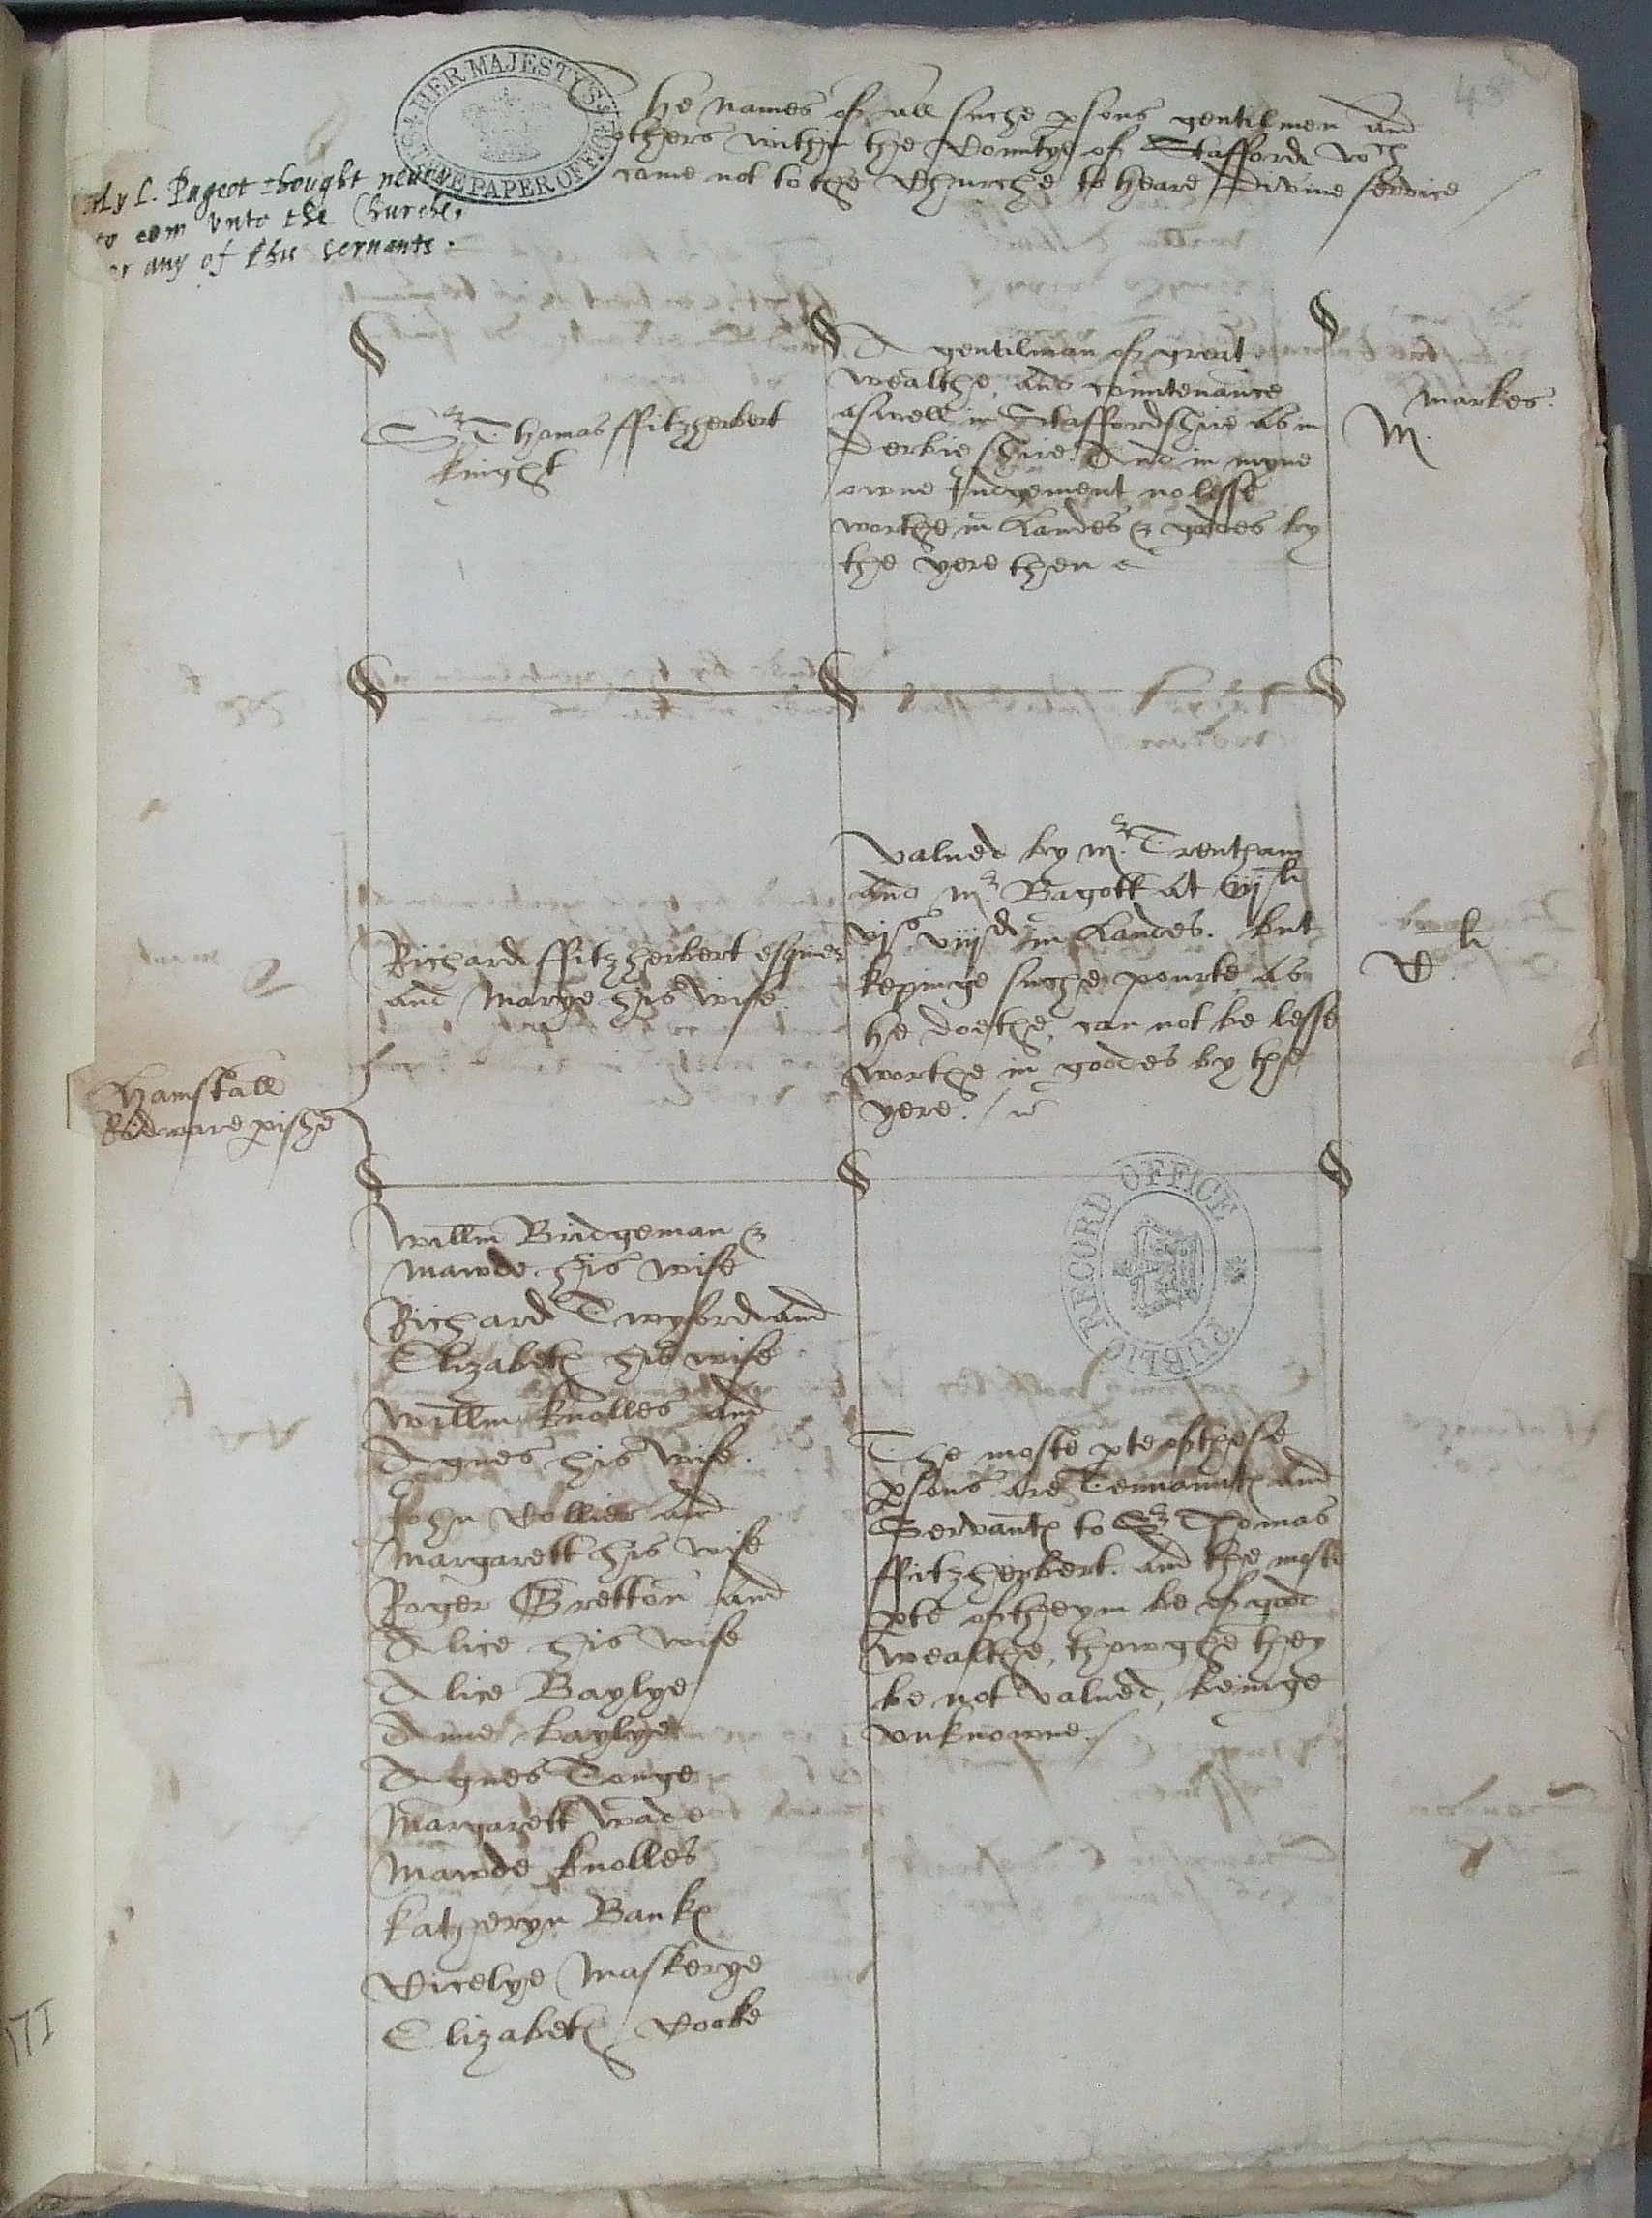 48
HER MAJESTY'S STATE PAPER OFFICE
The names of all suche psons gentilmen and
others within the Countye of Stafford wch
come not to the Churche to heare Divine service
My L. Pageot thought neuer
to com vnto the Churche,
or any of his servants.
Sr Thomas ffitzherbert
knight
A gentilman of great
wealthe, and countenance
aswell in Staffordshire as in
Derbie shire. And in myne
owne Judgement no lesse
worthe in Landes & goodes by
the yere then a
markes.
M.
Richard ffitzherbert esquier
and Marye his wife.
valued by mr. Trentham
and mr. Bagott at
vjs viijd in Landes. But
kepinge suche pourte as
he doethe, can not be lesse
worthe in goodes by the
yere.
li
C.
Hamstall
Ridware pishe
Willm Bridgeman &
Mawde his wife
Richard Twyford and
Elizabeth his wife
Willm knolles and
Agnes his wife.
John Collier and
Margarett his wife
Roger Gretton and
Alice his wife
Alice Baylye
Anne baylye
Agnes Tonge
Margarett Wade
Mawde knolles
Katheryn Banks
Cicelye Maskerye
Elizabeth Cooke
PUBLIC RECORD OFFICE
The moste pte of these
psons are Tennaunts and
Servants to Sr Thomas
ffitzherbert. and the moste
pte of theym be of good
wealthe, thowghe they
be not valued, beinge
vnknowne.
171